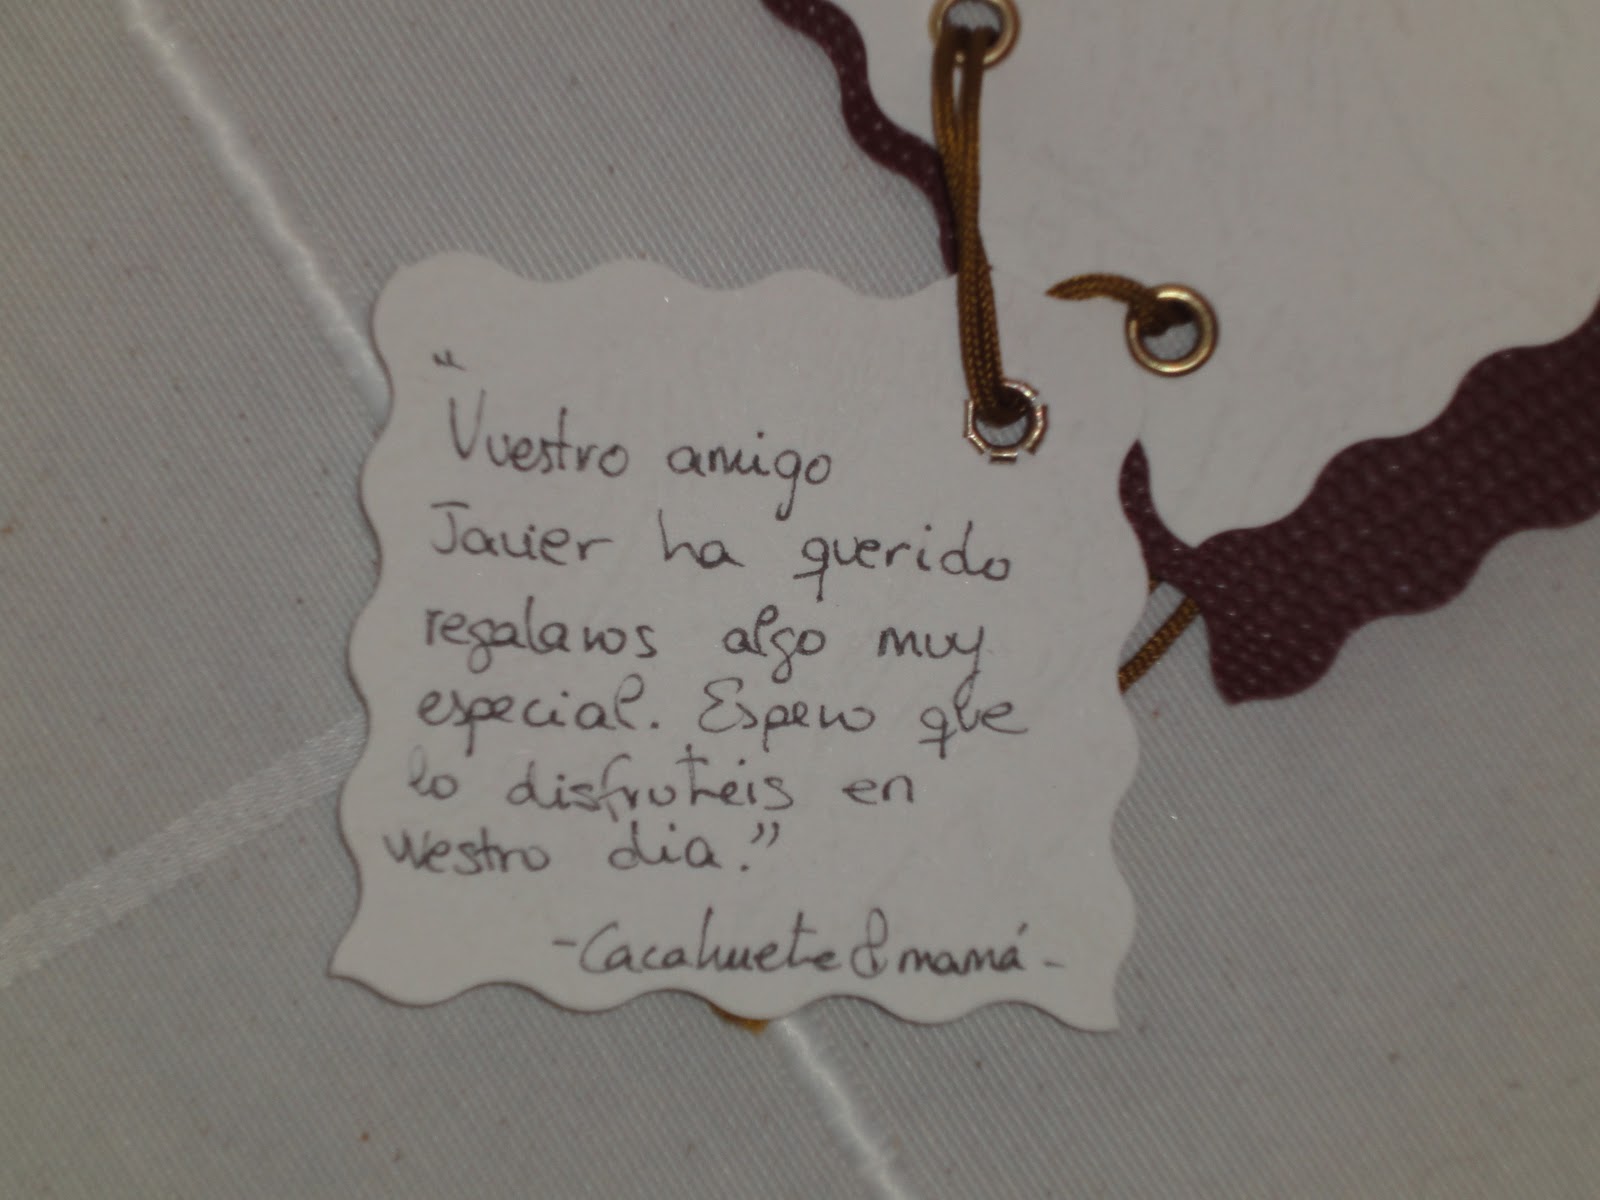 “
Vuestro amigo
Javier ha querido
regalaros algo muy
especial. Espero que
lo disfruteis en
vuestro dia.”
-Cacahuete & mamá-